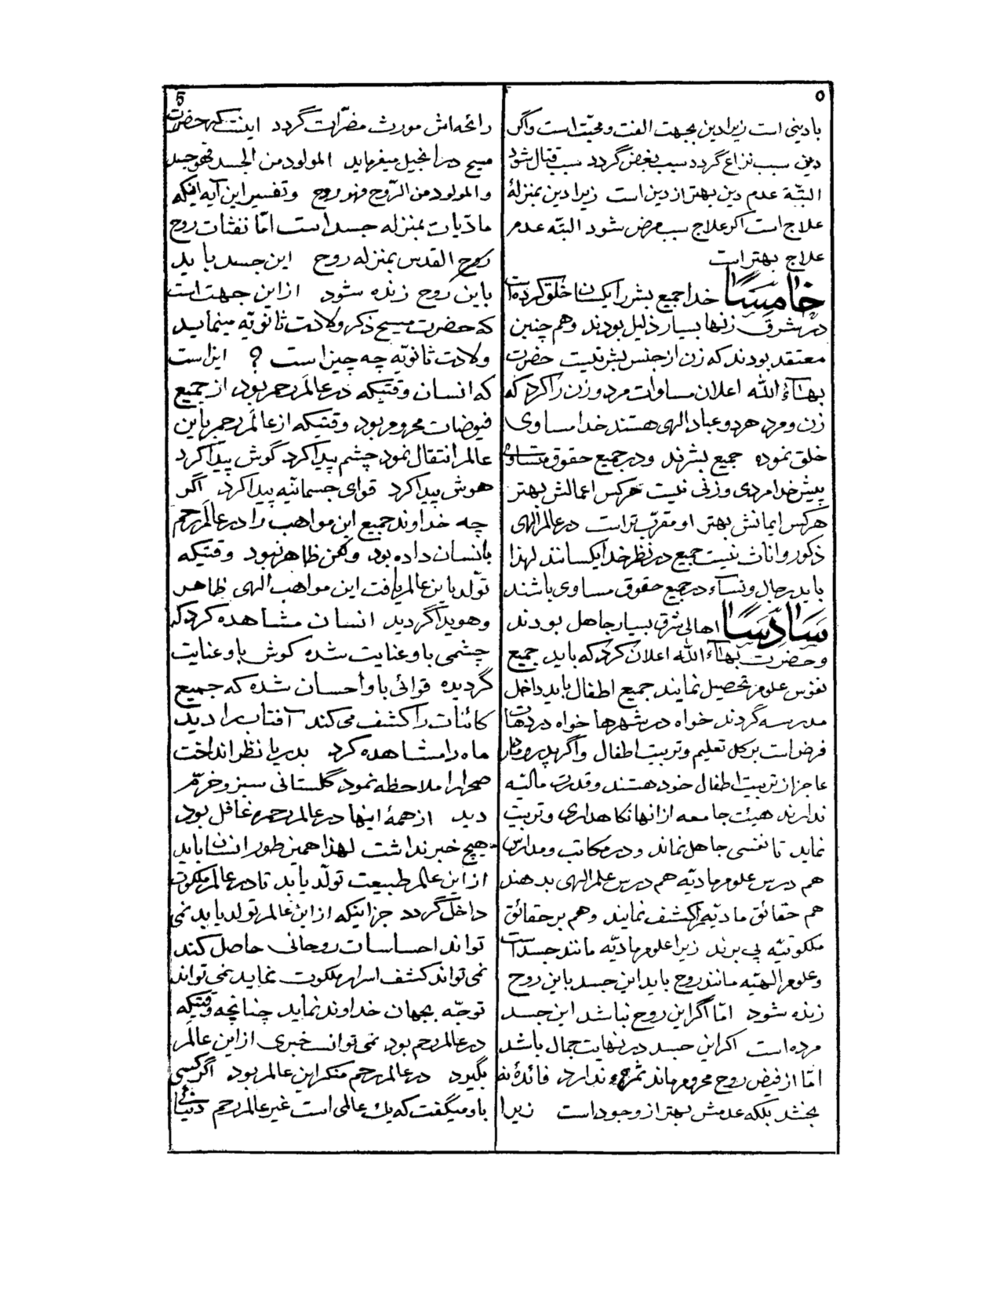 ۵
بادینی است زیرا دین بجهت الفت و محبّت است و اگر
دین سبب نزاع گردد سبب بغض گردد سبب قتال شود
البتّه عدم دین بهتر از دین است زیرا دین بمنزلهٔ
علاج است اگر علاج سبب مرض شود البته عدم
علاج بهتر است
خامسًا خدا جمیع بشر را یکسان خلق کرده است
در شرق زنها بسیار ذلیل بودند و هم چنین
معتقد بودند که زن از جنس بشر نیست حضرت
بهآءالله اعلان مساوات مرد و زن را کرد که
زن و مرد هر دو عباد الهی هستند خدا مساوی
خلق نموده جمیع بشرند و در جمیع حقوق متساوی
پیش خدا مردی و زنی نیست هر کس اعمالش بهتر
هر کس ایمانش بهتر او مقرب تر است در عالم الهی
ذکور و اناث نیست جمیع در نظر خدا یکسانند لهذا
باید رجال و نسآء در جمیع حقوق مساوی باشند
سادسًا اهالی شرق بسیار جاهل بودند
و حضرت بهآءالله اعلان کرد که باید جمیع
نفوس علوم تحصیل نمایند جمیع اطفال باید داخل
مدرسه گردند خواه در شهرها خواه در دهات
فرض است بر کل تعلیم و تربیت اطفال و اگر پدر و مادر
عاجز از تربیت اطفال خود هستند و قدرت مالیّه
ندارند هیئت جامعه از آنها نگاهداری و تربیت
نماید تا نفسی جاهل نماند و در مکاتب و مدارس
هم درس علوم مادیّه هم درس علم الهی بدهند
هم حقائق مادیّه را کشف نمایند و هم بر حقائق
ملکوتیّه پی برند زیرا علوم مادیّه مانند جسد است
و علوم الهیّه مانند روح باید این جسد باین روح
زنده شود امّا اگر این روح نباشد این جسد
مرده است اگر این جسد در نهایت جمال باشد
امّا از فیض روح محروم ماند ثمره ندارد فائدهٔ نه
بخشد بلکه عدمش بهتر از وجود است زیرا
5
رائحه‌اش مورث مضرّات گردد اینست که حضرت
مسیح در انجیل میفرماید المولود من الجسد فهو جسد
والمولود من الرّوح فهو روح و تفسیر این آیه اینکه
مادیات بمنزله جسد است امّا نفثات روح
روح القدس بمنزله روح این جسد باید
باین روح زنده شود از این جهت است
که حضرت مسیح ذکر ولادت ثانویّه مینماید
ولادت ثانویّه چه چیز است ؟ این است
که انسان وقتیکه در عالم رحم بود از جمیع
فیوضات محروم بود وقتیکه از عالم رحم باین
عالم انتقال نمود چشم پیدا کرد گوش پیدا کرد
هوش پیدا کرد قوای جسمانیّه پیدا کرد اگر
چه خداوند جمیع این مواهب را در عالم رحم
بانسان داده بود ولکن ظاهر نبود وقتیکه
تولّد باین عالم یافت این مواهب الهی ظاهر
و هویدا گردید انسان مشاهده کرد که
چشمی باو عنایت شده گوش باو عنایت
گردیده قوائی باو احسان شده که جمیع
کائنات را کشف می‌کند آفتاب را دید
ماه را مشاهده کرد بدریا نظر انداخت
صحرا را ملاحظه نمود گلستانی سبز و خرّم
دید از همهٔ اینها در عالم رحم غافل بود
هیچ خبر نداشت لهذا همین طور انسان باید
از این عالم طبیعت تولّد یابد تا در عالم ملکوت
داخل گردد جز اینکه از این عالم تولد یابد نمی
تواند احساسات روحانی حاصل کند
نمی‌تواند کشف اسرار ملکوت نماید نمی‌تواند
توجّه بجهان خداوند نماید چنانچه وقتیکه
در عالم رحم بود نمی توانست خبری از این عالم
بگیرد در عالم رحم منکر این عالم بود اگر کسی
باو میگفت که یک عالمی است غیر عالم رحم دنیائی